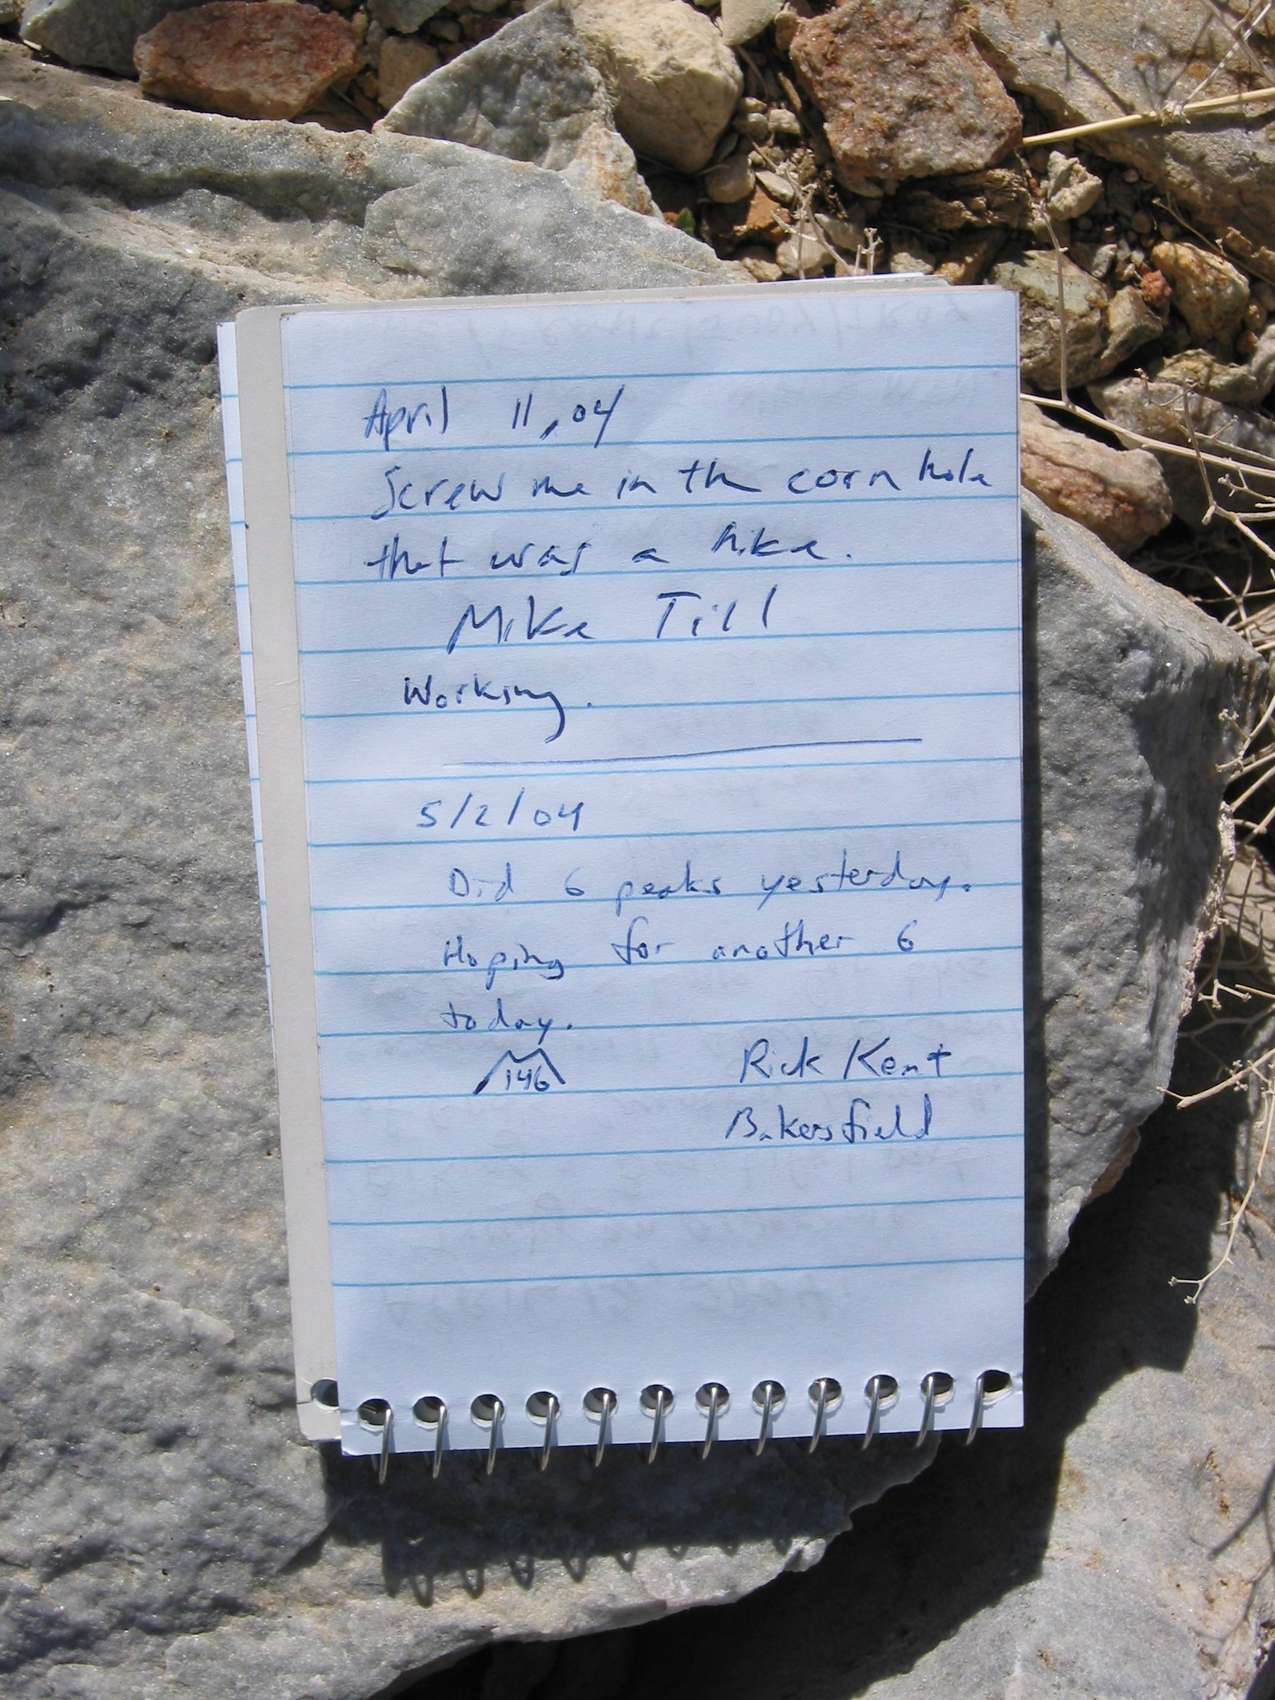 April 11, 04
Screw me in the corn hole
that was a hike.
Mike Till
Working.
5/2/04
Did 6 peaks yesterday.
Hoping for another 6
today.
146
Rick Kent
Bakersfield